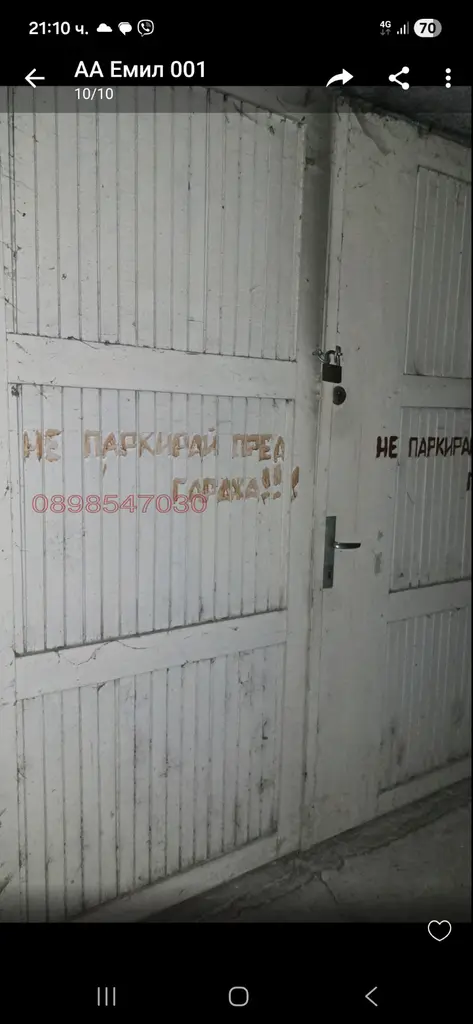 21:10 ч.
4G
70
АА Емил 001
10/10
НЕ ПАРКИРАЙ ПРЕД
ГАРАЖА!!!
0898547030
НЕ ПАРКИРА